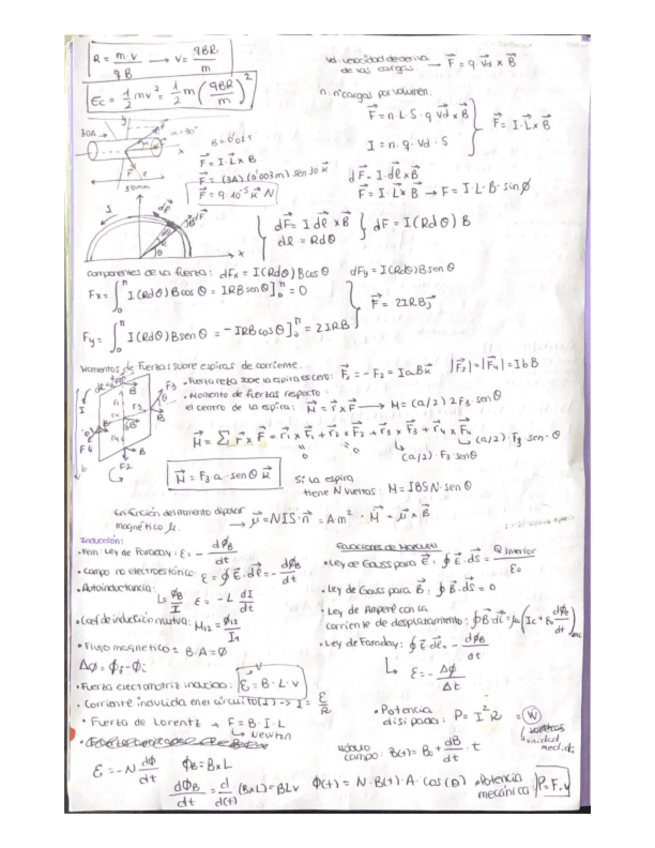 R = m·v / qB → v = qBR / m
Ec = 1/2 mv² = 1/2 m (qBR / m)²
vd: velocidad de deriva de las cargas. → F⃗ = q·v⃗d × B⃗
n: nº cargas por volumen.
F⃗ = n·L·S·q·v⃗d × B⃗
I = n·q·Vd·S
F⃗ = I·L⃗ × B⃗
30A
y
α=30°
x
B = 0'02T
30mm
F⃗ = I·L⃗ × B
F⃗ = (3A)(0'003m) sen 30 k⃗
F⃗ = 9·10⁻⁵ k⃗ N
dF⃗ = I·dℓ⃗ × B⃗
F⃗ = I·L⃗ × B⃗ → F = I·L·B·sinϕ
I
dℓ⃗
dF⃗
θ
x
dF⃗ = I dℓ⃗ × B⃗
dℓ = Rdθ
dF = I(Rdθ) B
componentes de la fuerza: dFx = I(Rdθ)Bcosθ dFy = I(Rdθ)Bsenθ
Fx = ∫₀^π I(Rdθ)Bcosθ = IRBsenθ]₀^π = 0
Fy = ∫₀^π I(Rdθ)Bsenθ = -IRBcosθ]₀^π = 2IRB
F⃗ = 2IRB j⃗
Momentos de Fuerzas sobre espiras de corriente.
• Fuerza neta sobre la espira es cero: F⃗₁ = -F⃗₂ = IaBk⃗ |F⃗₃| = |F⃗₄| = IbB
• Momento de fuerzas respecto
el centro de la espira: M⃗ = r⃗ × F⃗ → M = (a/2) 2F₃ senθ
M⃗ = Σ r⃗ × F⃗ = r⃗₁ × F⃗₁ + r⃗₂ × F⃗₂ + r⃗₃ × F⃗₃ + r⃗₄ × F⃗₄
0 0 (a/2)·F₃·senθ (a/2)·F₃ senθ
I
F3
B
F4
F2
b
M⃗ = F₃·a·senθ k⃗
Si la espira
tiene N vueltas: M = IBSN·senθ
En función del momento dipolar
magnético μ. → μ⃗ = NIS·n⃗ = A·m² · M⃗ = μ⃗ × B⃗
Inducción:
• Fem: Ley de Faraday: ε = - dϕB / dt
• Campo no electrostático: ε = ∮ E⃗·dℓ⃗ = - dϕB / dt
• Autoinductancia:
L = ϕB / I ε = -L dI / dt
• Coef de inducción mutua: M₁₂ = ϕ₁₂ / I₁
• Flujo magnético = B·A = ϕ
Δϕ = ϕf - ϕi
• Fuerza electromotriz inducida: ε = B·L·v
• Corriente inducida en el circuito (I) -> I = ε / R
• Fuerza de Lorentz → F = B·I·L
↳ Newton
ε = -N dϕ / dt ϕB = BxL
dϕB / dt = d / d(t) (BxL) = BLv
Ecuaciones de Maxwell
• Ley de Gauss para E⃗: ∮ E⃗·ds⃗ = Q interior / ε₀
• Ley de Gauss para B⃗: ∮ B⃗·ds⃗ = 0
• Ley de Ampere con la
corriente de desplazamiento: ∮ B⃗·dℓ⃗ = μ₀ (Ic + ε₀ dϕE / dt)
• Ley de Faraday: ∮ E⃗·dℓ⃗ = - dϕB / dt
↳ ε = - Δϕ / Δt
• Potencia
disipada: P = I² R = (W)
unidad
medida
Módulo
campo: B(t) = B₀ + dB / dt · t
ϕ(t) = N·B(t)·A·cos(θ)
• Potencia
mecánica: P = F·v